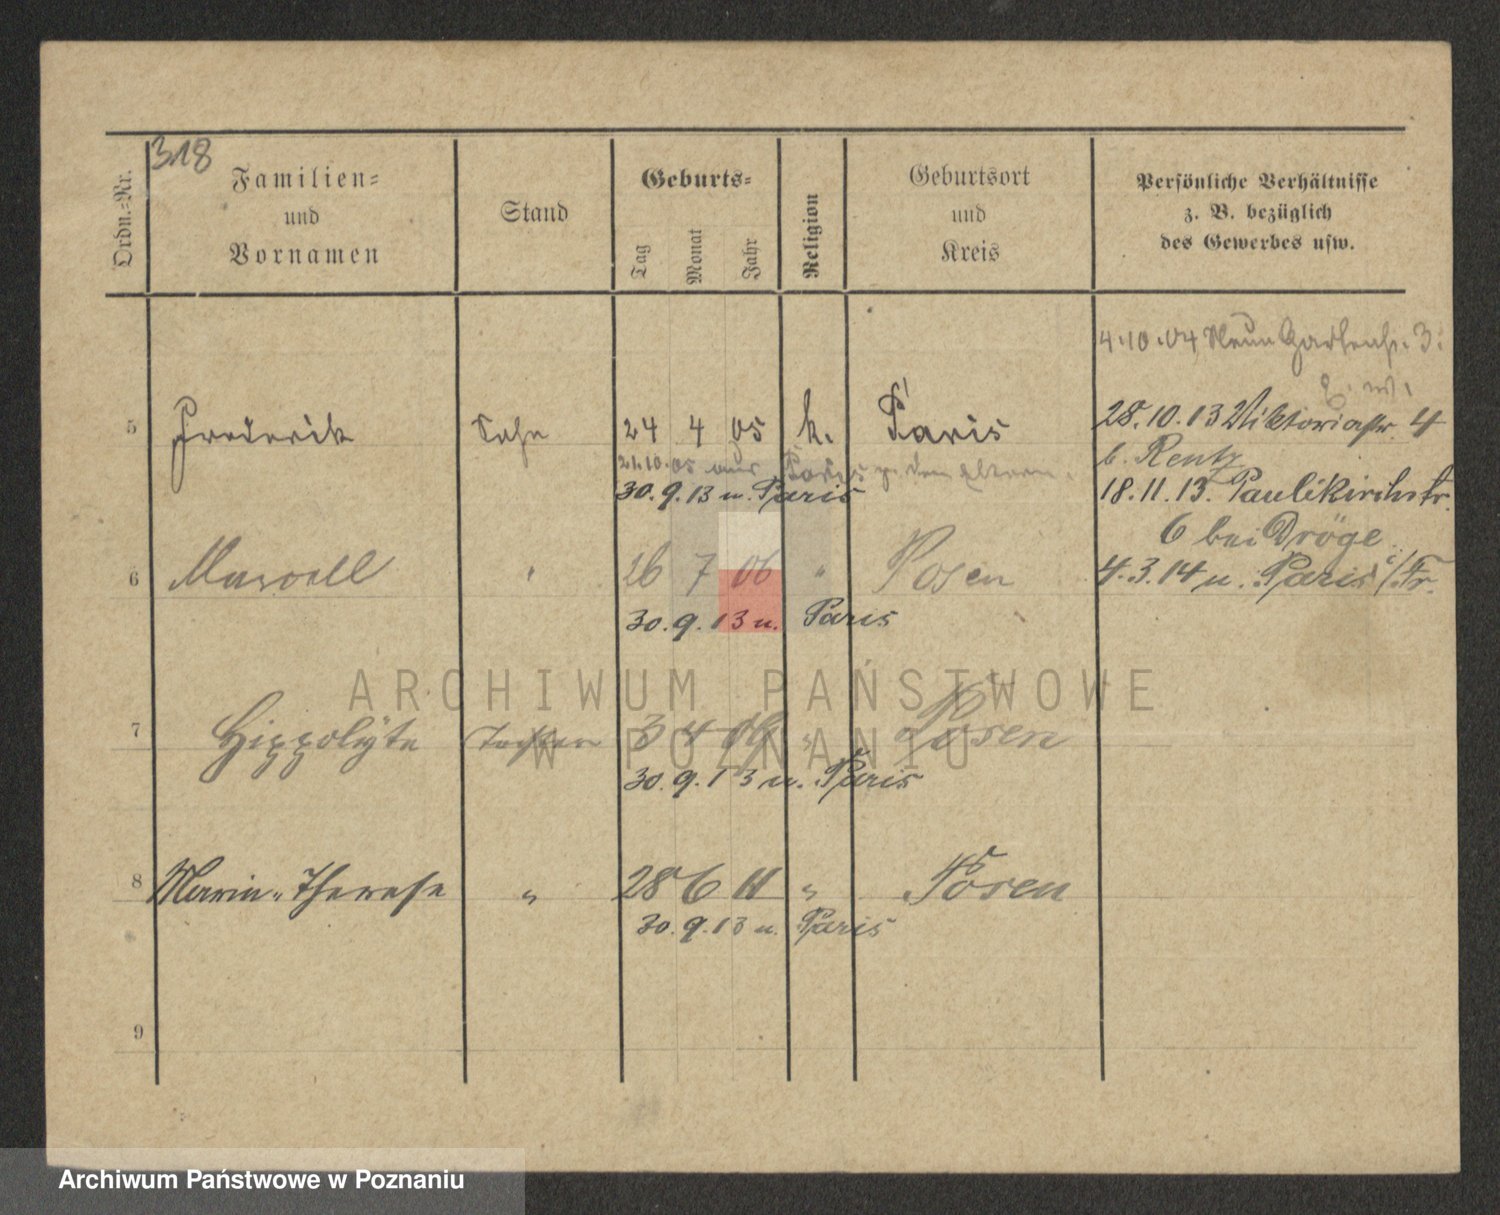 318
Ordn.-Nr.
Familien-
und
Vornamen
Stand
Geburts-
Tag
Monat
Jahr
Religion
Geburtsort
und
Kreis
Persönliche Verhältnisse
z. B. bezüglich
des Gewerbes usw.
4.10.04 Gartenstr. 3.
5 Frederik Sohn 24 4 05 k. Paris
21.10.05 aus Paris z. den Eltern.
30.9.13 n. Paris
28.10.13 Viktoriastr. 4
b. Rentz
18.11.13. Paulikirchstr.
6 bei Dröge
4.3.14 n. Paris i/Fr.
6 " 26 7 06 " Posen
30.9.13 n. Paris
7 Hippolyte Tochter 3 4 09 " Posen
30.9.13 n. Paris
8 Marie-Therese " 28 6 11 " Posen
30.9.13 n. Paris
9
ARCHIWUM PAŃSTWOWE
W POZNANIU
Archiwum Państwowe w Poznaniu